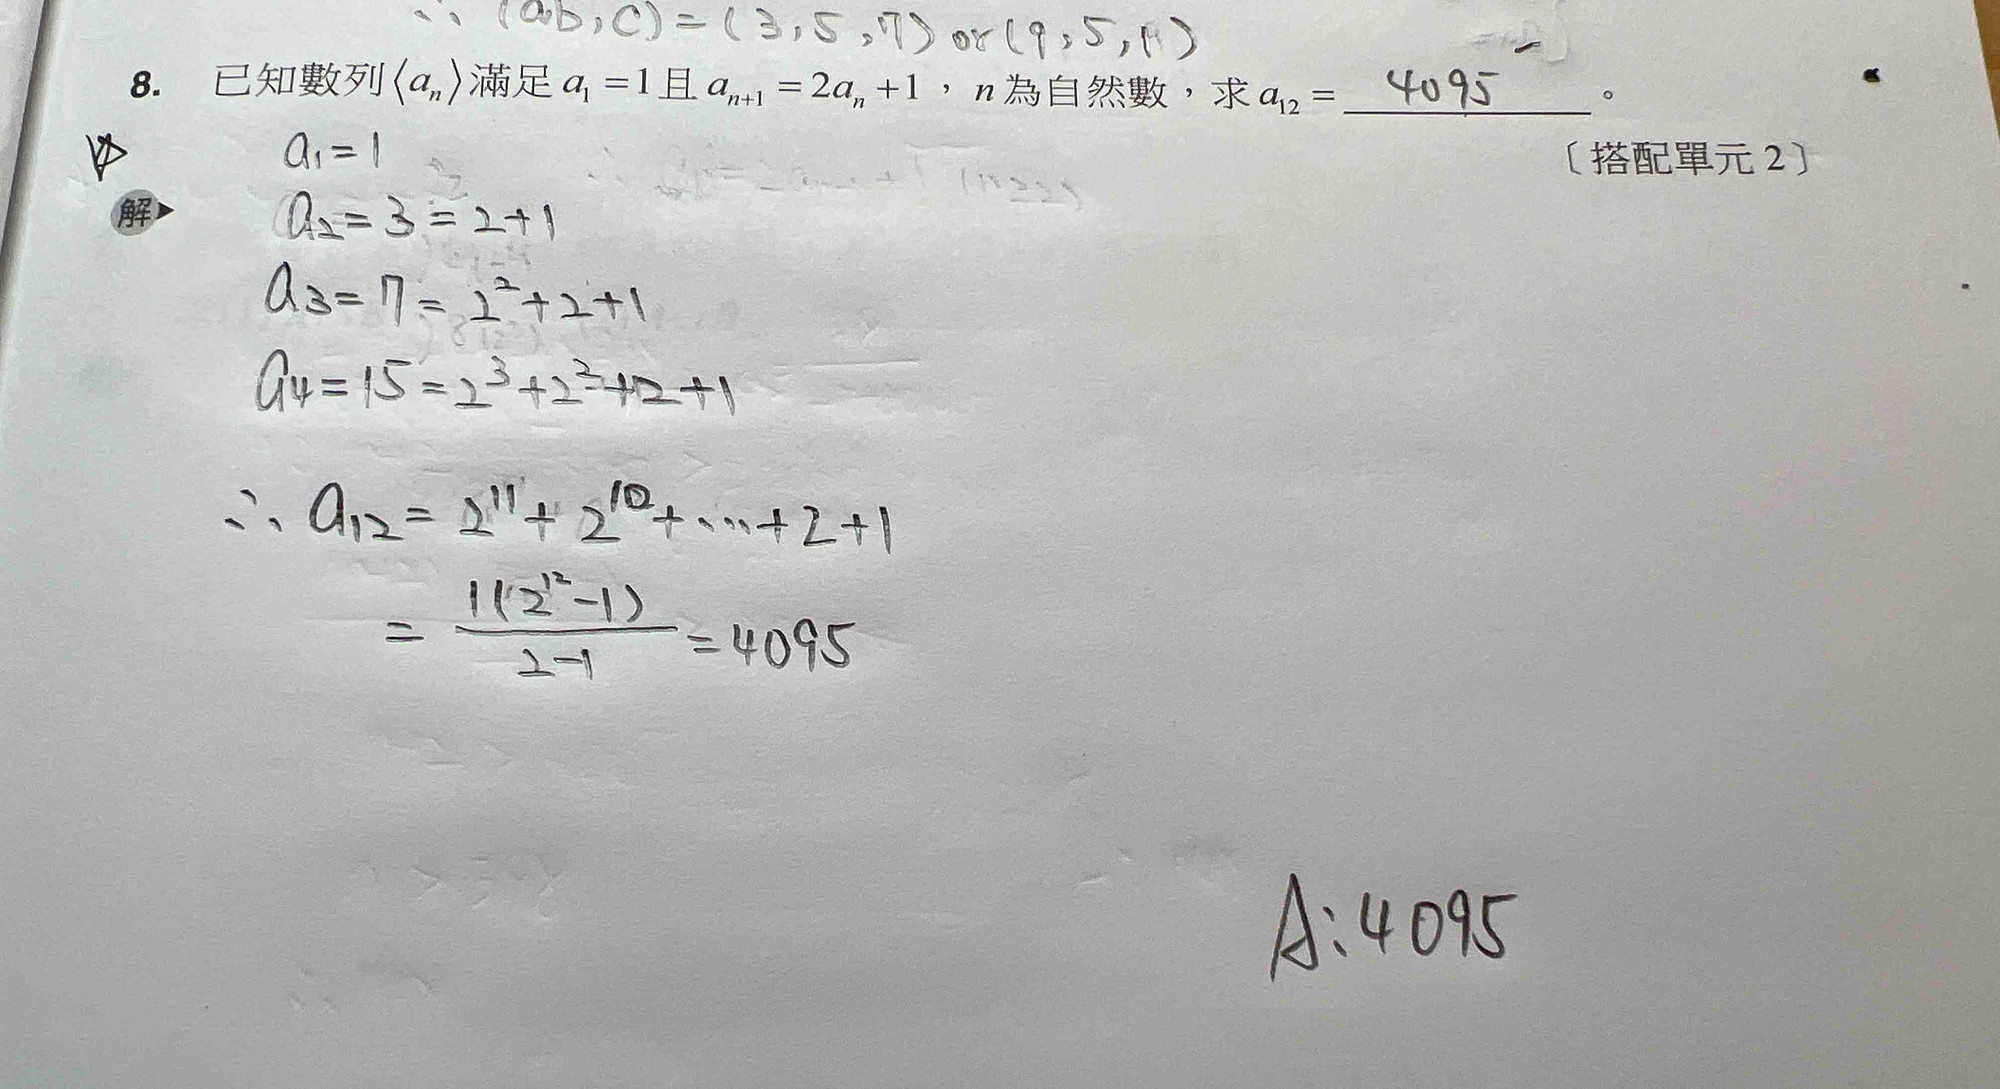 ∴ (a,b,c)=(3,5,7) or (9,5,1)
8. 已知數列⟨aₙ⟩滿足 a₁=1 且 aₙ₊₁=2aₙ+1，n 為自然數，求 a₁₂= 4095 。
〔搭配單元 2〕
a₁=1
解 a₂=3=2+1
a₃=7=2²+2+1
a₄=15=2³+2²+2+1
∴ a₁₂=2¹¹+2¹⁰+⋯+2+1
= 1(2¹²-1)/2-1 =4095
A:4095